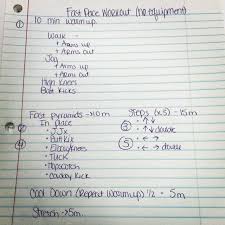 Fast Pace Workout (No Equipment)
① 10 min warmup
Walk
+ Arms up
+ Arms out
Jog
+ Arms up
+ Arms out
High Knees
Butt Kicks
② Fast pyramids → 10m
In Place
• JJx
• Butt Kix
• High Knees
• Tuck
• Hopscotch
• Cowboy Kick
Steps (x5) - 15m
③ • ↑ ↓
• ↑ ↓ double
⑤ • ← →
• ← → double
④ Cool Down (Repeat Warmup) 1/2 = 5m
Stretch → 5m